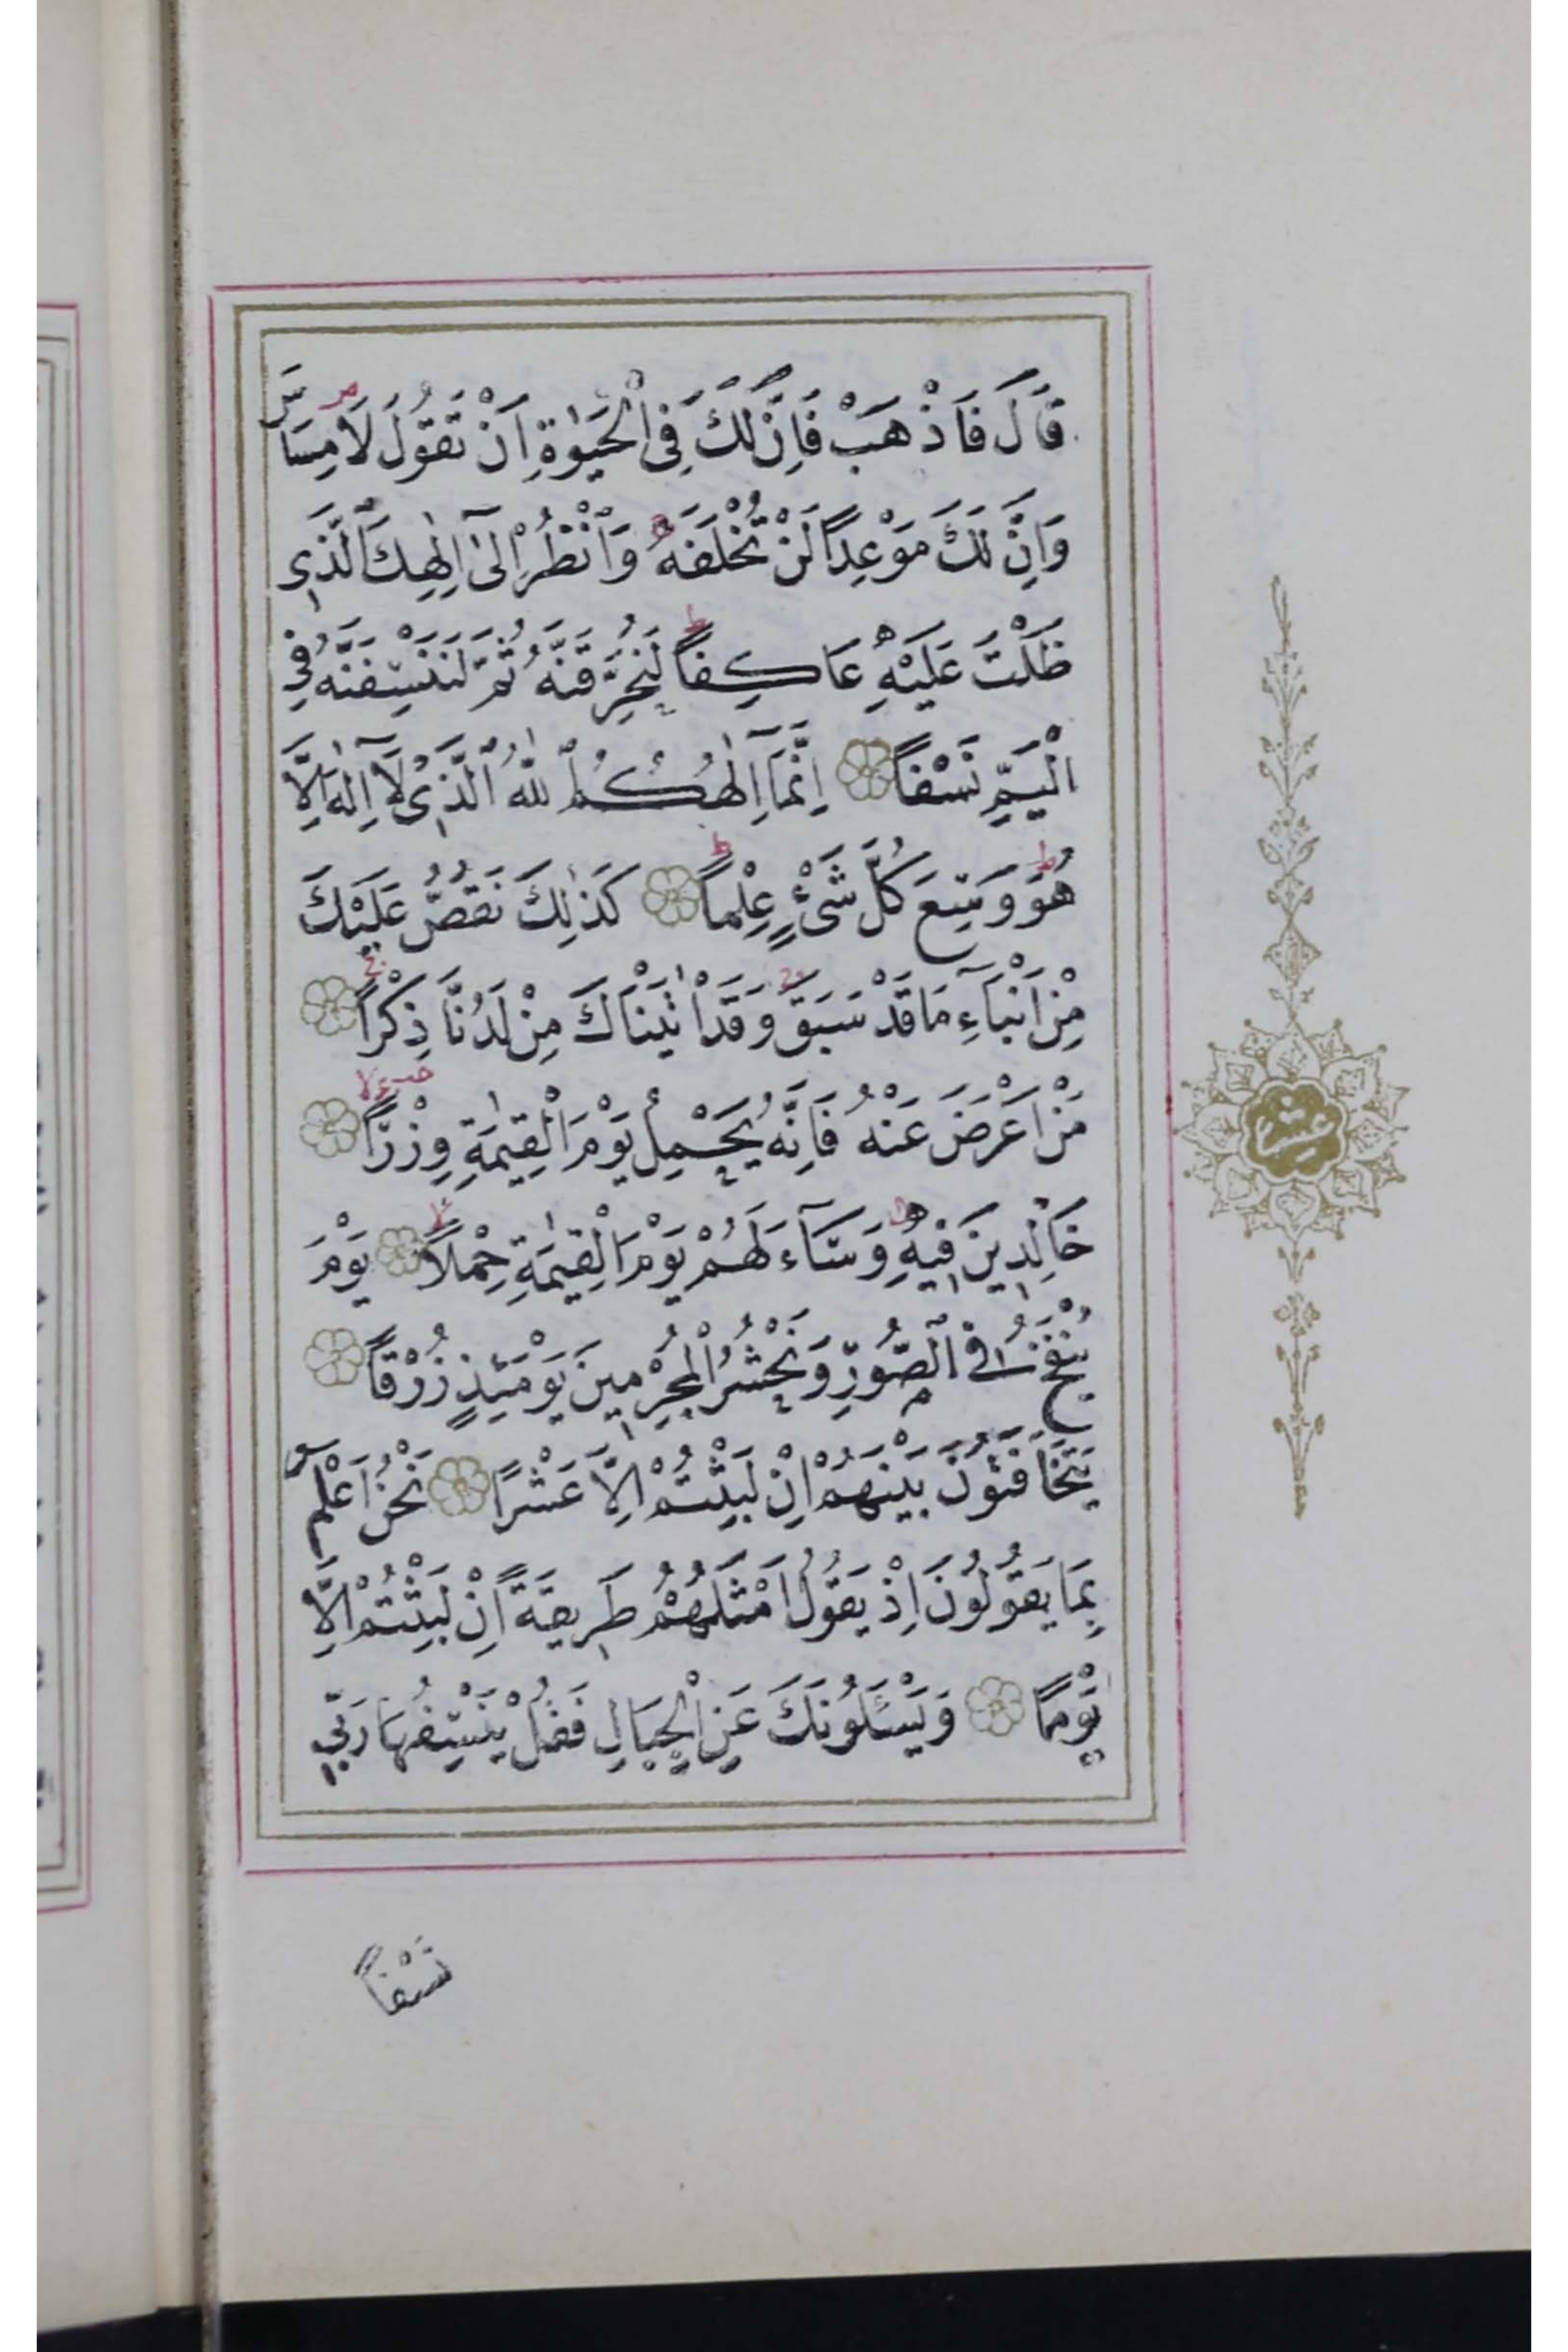 قَالَ فَاذْهَبْ فَاِنَّ لَكَ فِى الْحَيٰوةِ اَنْ تَقُولَ لَا مِسَاسَ
وَاِنَّ لَكَ مَوْعِدًا لَنْ تُخْلَفَهُ وَانْظُرْ اِلٰٓى اِلٰهِكَ الَّذِى
ظَلْتَ عَلَيْهِ عَاكِفًا لَنُحَرِّقَنَّهُ ثُمَّ لَنَنْسِفَنَّهُ فِى
الْيَمِّ نَسْفًا اِنَّمَٓا اِلٰهُكُمُ اللّٰهُ الَّذِى لَٓا اِلٰهَ اِلَّا
هُوَ وَسِعَ كُلَّ شَىْءٍ عِلْمًا كَذٰلِكَ نَقُصُّ عَلَيْكَ
مِنْ اَنْبَٓاءِ مَا قَدْ سَبَقَ وَقَدْ اٰتَيْنَاكَ مِنْ لَدُنَّا ذِكْرًا
مَنْ اَعْرَضَ عَنْهُ فَاِنَّهُ يَحْمِلُ يَوْمَ الْقِيٰمَةِ وِزْرًا
خَالِدِينَ فِيهِ وَسَٓاءَ لَهُمْ يَوْمَ الْقِيٰمَةِ حِمْلًا يَوْمَ
يُنْفَخُ فِى الصُّورِ وَنَحْشُرُ الْمُجْرِمِينَ يَوْمَئِذٍ زُرْقًا
يَتَخَافَتُونَ بَيْنَهُمْ اِنْ لَبِثْتُمْ اِلَّا عَشْرًا نَحْنُ اَعْلَمُ
بِمَا يَقُولُونَ اِذْ يَقُولُ اَمْثَلُهُمْ طَرِيقَةً اِنْ لَبِثْتُمْ اِلَّا
يَوْمًا وَيَسْـَٔلُونَكَ عَنِ الْجِبَالِ فَقُلْ يَنْسِفُهَا رَبِّى
نَسْفًا